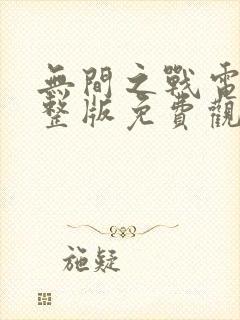 無間之戰電
整版免費觀
施疑